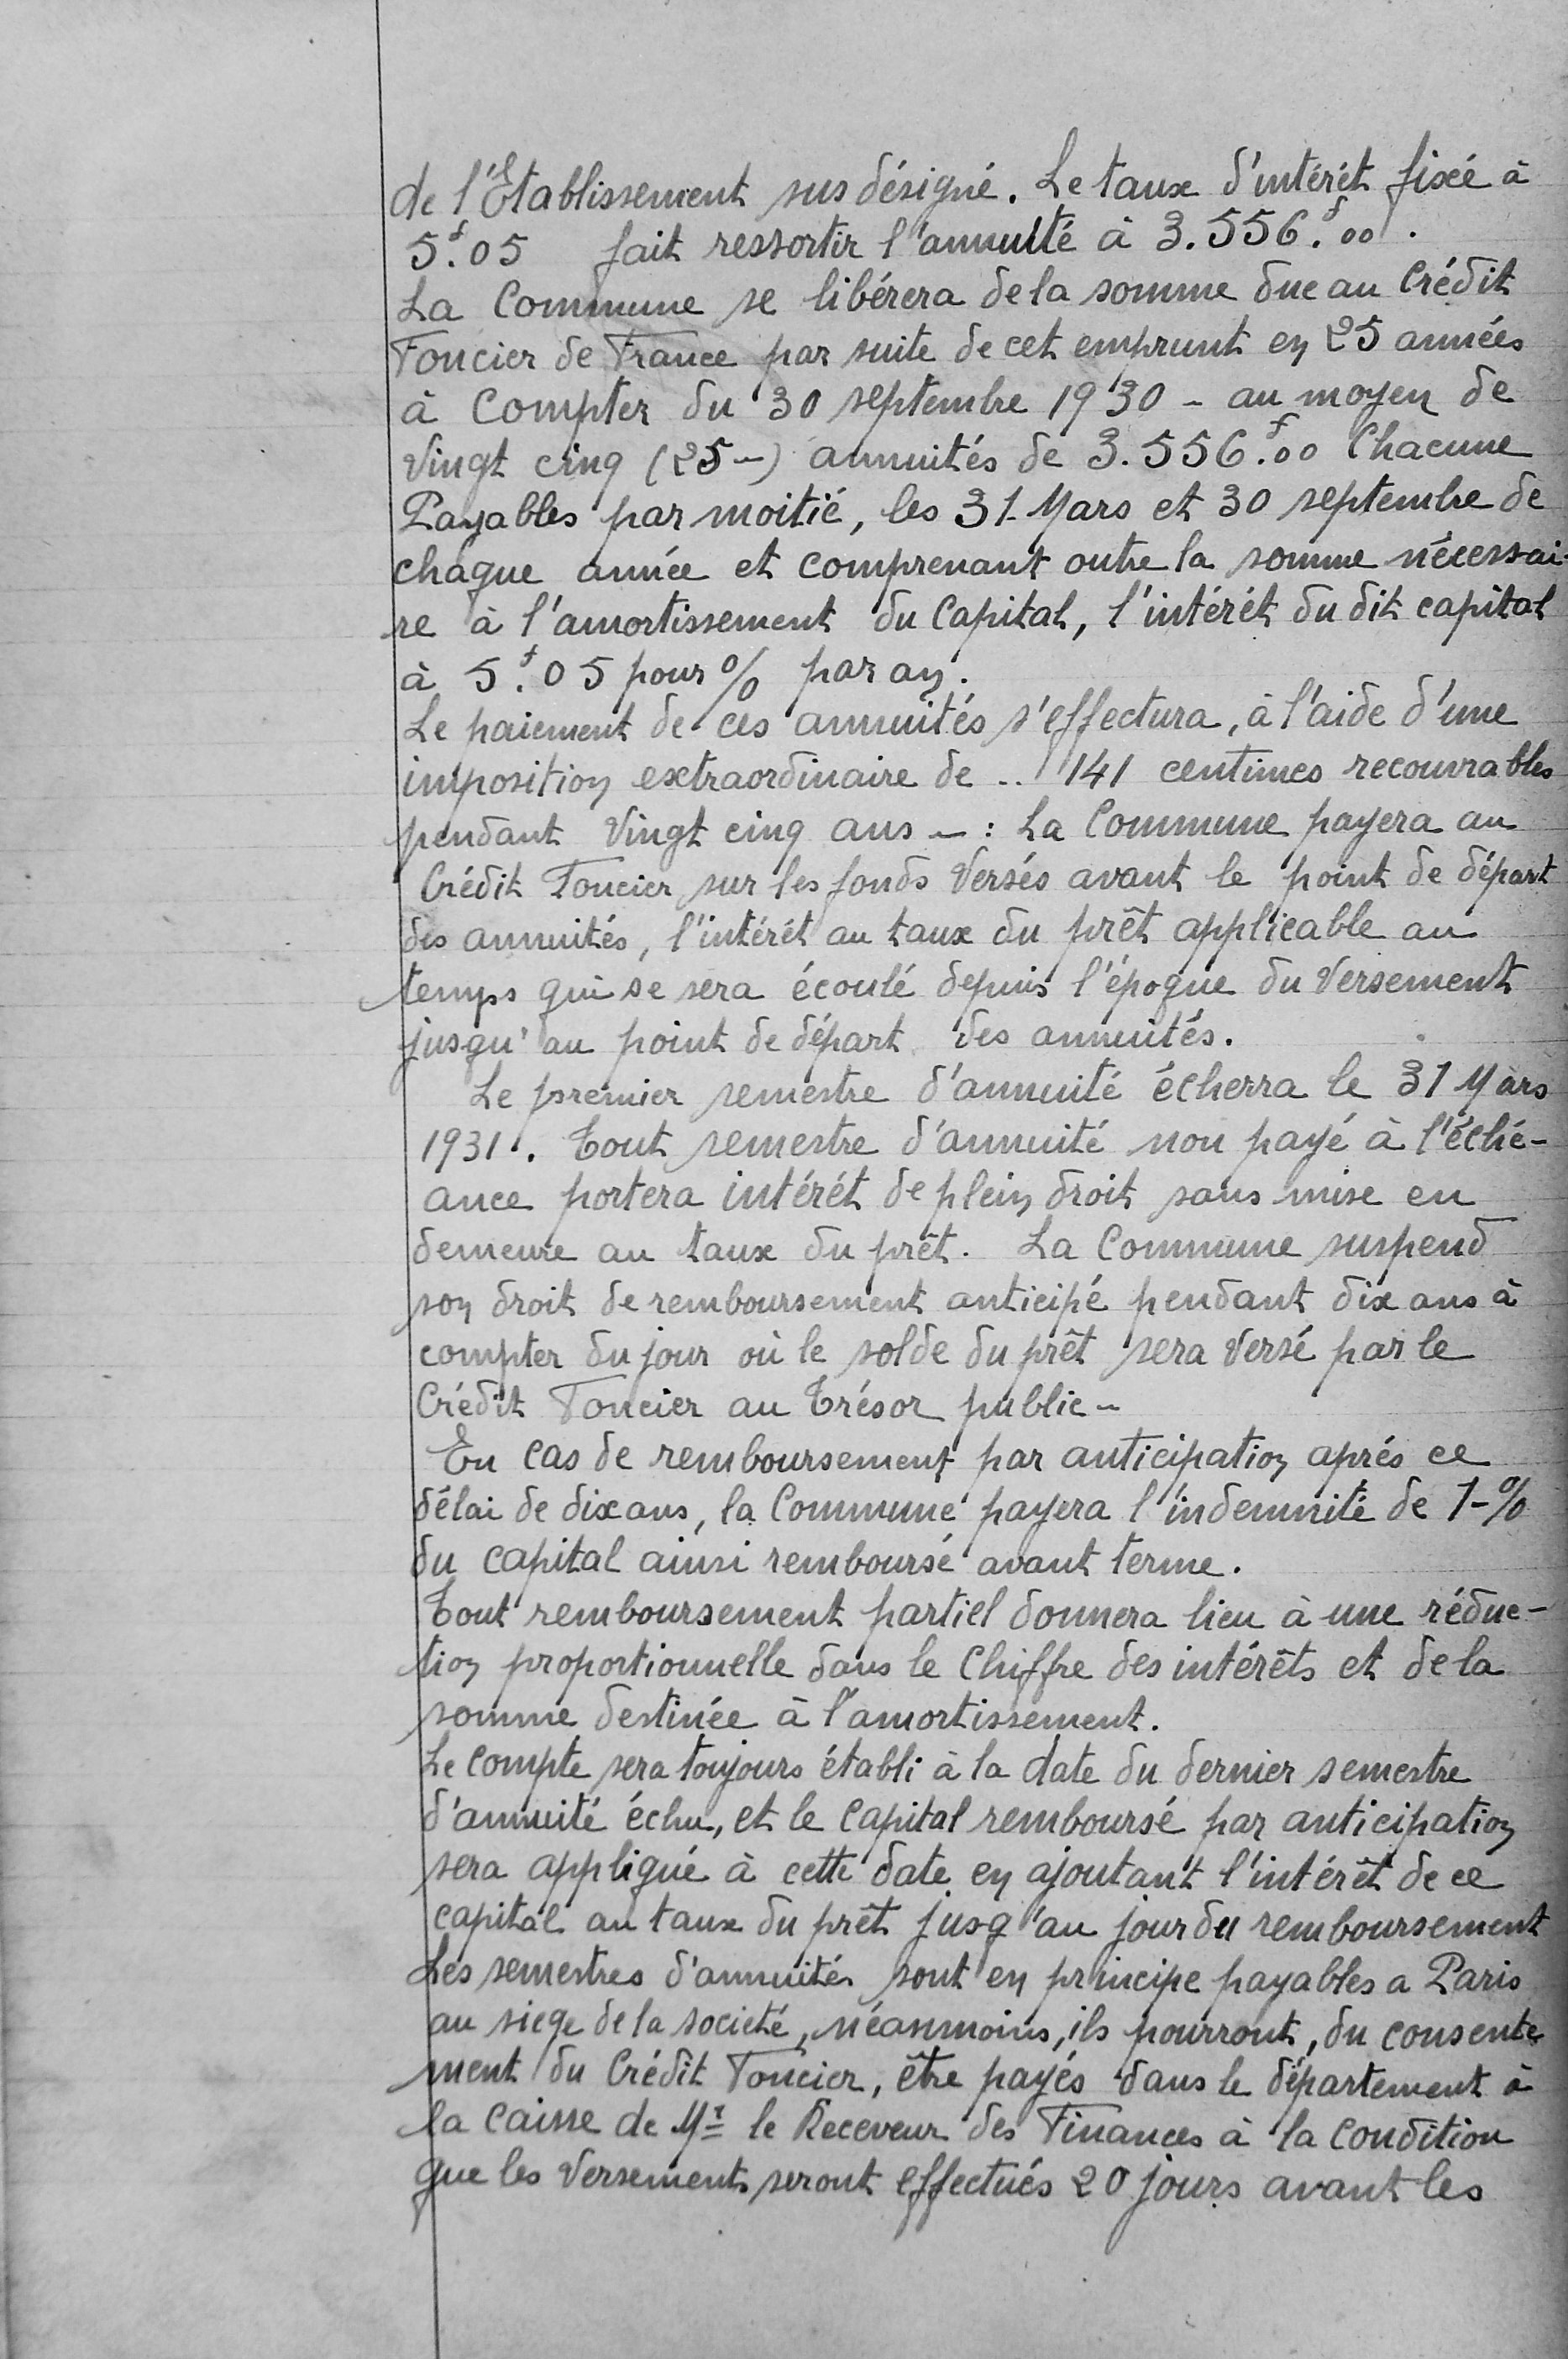 de l'Etablissement sus désigné. Le taux d'intérêt fixée à
5.f05 fait ressortir l'annuité à 3.556.f00.
La Commune se libérera de la somme due au Crédit
Foncier de France par suite de cet emprunt en 25 années
à Compter du 30 septembre 1930 - au moyen de
Vingt cinq (25-) annuités de 3.556.f00 Chacune
Payables par moitié, les 31 Mars et 30 septembre de
chaque année et comprenant outre la somme nécessai-
re à l'amortissement du Capital, l'intérêt du dit capital
à 5.f05 pour % par an.
Le paiement de ces annuités s'effectura, à l'aide d'une
imposition extraordinaire de .. 141 centimes recouvrables
pendant Vingt cinq ans -: La Commune payera au
Crédit Foncier sur les fonds Versés avant le point de départ
des annuités, l'intérêt au taux du prêt applicable au
temps qui se sera écoulé depuis l'époque du Versement
jusqu'au point de départ des annuités.
Le premier semestre d'annuité écherra le 31 Mars
1931. Tout semestre d'annuité non payé à l'éché-
ance portera intérêt de plein droit sans mise en
demeure au taux du prêt. La Commune suspend
son droit de remboursement anticipé pendant dix ans à
compter du jour où le solde du prêt sera Versé par le
Crédit Foncier au Trésor public -
En cas de remboursement par anticipation aprés ce
délai de dix ans, la Commune payera l'indemnité de 1-%
du capital ainsi remboursé avant terme.
Tout remboursement partiel donnera lieu à une réduc-
tion proportionnelle dans le Chiffre des intérêts et de la
somme destinée à l'amortissement.
Le compte sera toujours établi à la date du dernier semestre
d'annuité échu, et le Capital remboursé par anticipation
sera appliqué à cette date en ajoutant l'intérêt de ce
capital au taux du prêt jusq'au jour du remboursement
Les semestres d'annuités sont en principe payables a Paris
au siege de la société, néanmoins, ils pourront, du consente
ment du Crédit Foncier, être payés dans le département à
la Caisse de Mr le Receveur des Finances à la Condition
que les Versements seront effectués 20 jours avant les